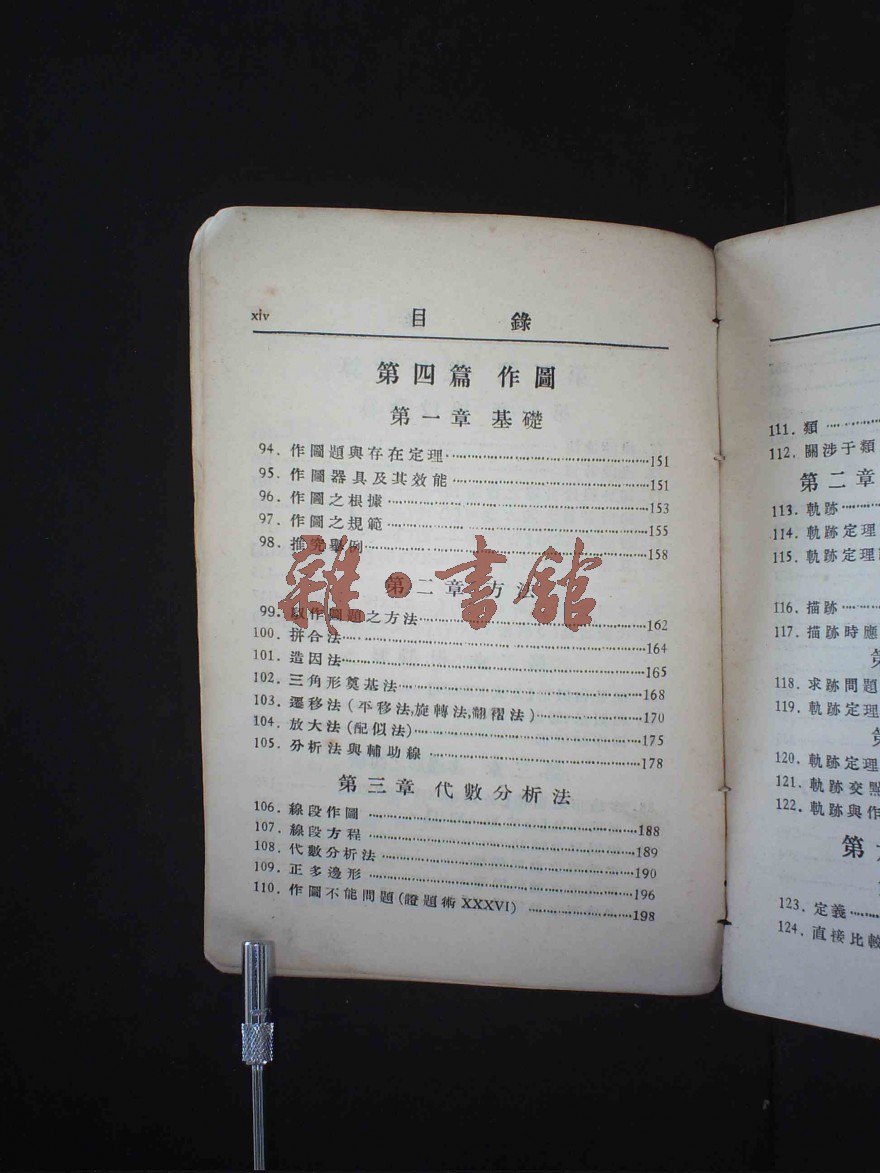 xiv 目 錄
第四篇 作圖
第一章 基礎
94. 作圖題與存在定理 151
95. 作圖器具及其效能 151
96. 作圖之根據 153
97. 作圖之規範 155
98. 推究舉例 158
第二章 方法
99. 作圖題之方法 162
100. 拼合法 164
101. 造因法 165
102. 三角形奠基法 168
103. 遷移法(平移法,旋轉法,翻褶法) 170
104. 放大法(配似法) 175
105. 分析法與輔助線 178
第三章 代數分析法
106. 線段作圖 188
107. 線段方程 189
108. 代數分析法 190
109. 正多邊形 196
110. 作圖不能問題(證題術 XXXVI) 198
雜·書館
111. 類
112. 關涉于類
第二章
113. 軌跡
114. 軌跡定理
115. 軌跡定理
116. 描跡
117. 描跡時應
第
118. 求跡問題
119. 軌跡定理
第
120. 軌跡定理
121. 軌跡交點
122. 軌跡與作
第
123. 定義
124. 直接比較